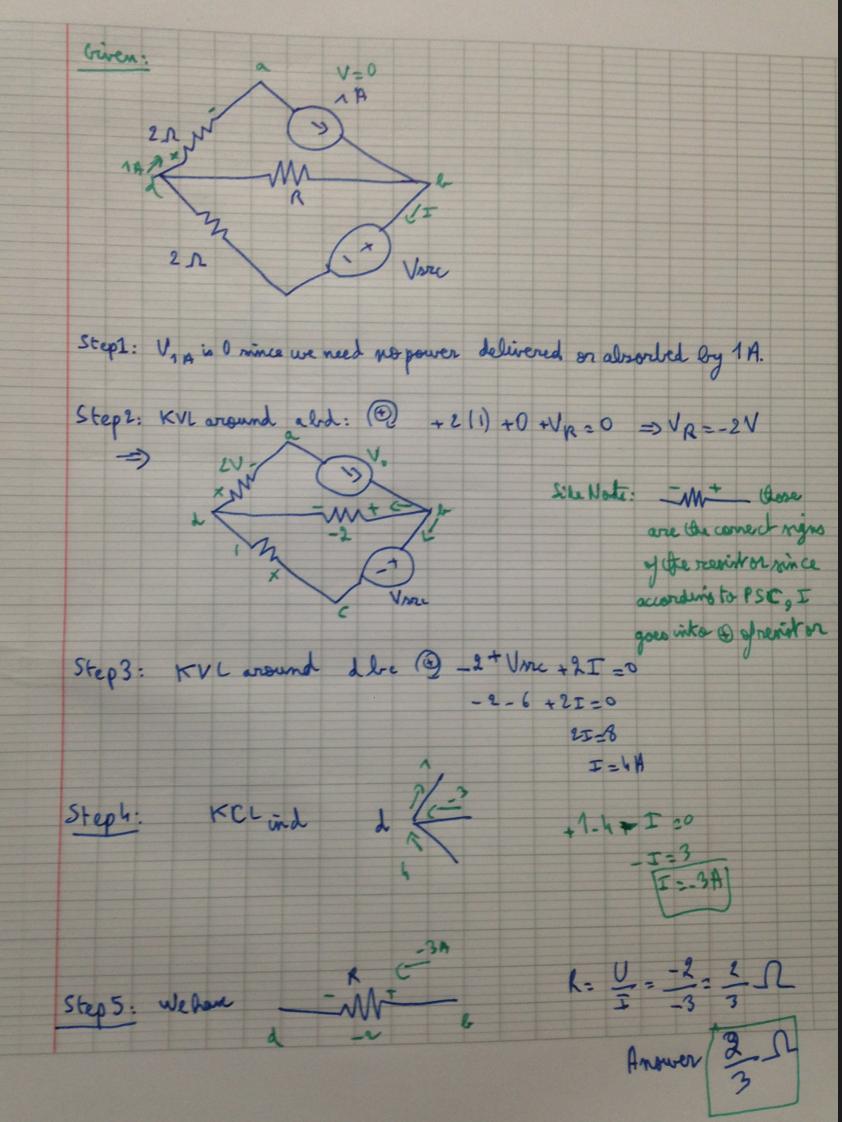 Given:
a
V=0
1A
2Ω
+
-
1A
d
R
b
I
2Ω
- +
Vsrc
Step1: V1A is 0 since we need no power delivered or absorbed by 1A.
Step2: KVL around abd: + +2(1) +0 +VR=0 ⇒ VR=-2V
⇒
a
2V
-
+
V0
d
- +
-2
b
+
- +
Vsrc
c
Side Note: - + those
are the correct signs
of the resistor since
according to PSC, I
goes into + of resistor
Step3: KVL around dbc + -2+Vsrc +2I=0
-2-6+2I=0
2I=8
I=4A
Step4: KCL in d
d
1
-3
4
+1-4-I=0
-I=3
I=-3A
Step5: We have
R
-3A
- +
d
-2
b
R= U/I = -2/-3 = 2/3 Ω
Answer 2/3 Ω